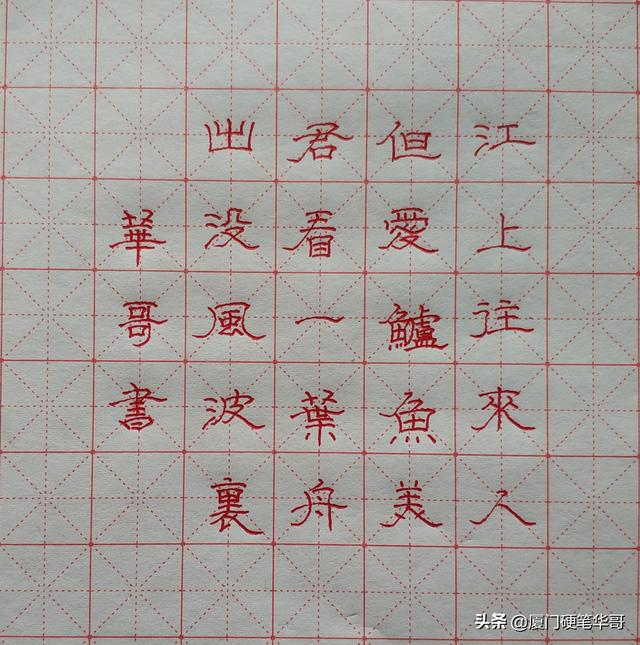 江上往來人
但愛鱸魚美
君看一葉舟
出没風波裏
華哥書
头条 @厦门硬笔华哥